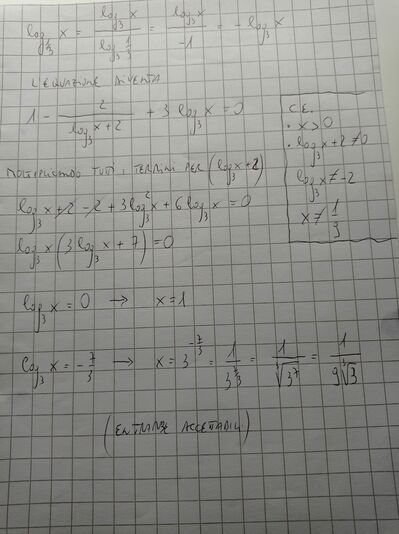 log_{1/3} x = \frac{log_3 x}{log_3 \frac{1}{3}} = \frac{log_3 x}{-1} = - log_3 x
L'EQUAZIONE DIVENTA
1 - \frac{2}{log_3 x + 2} + 3 log_3 x = 0
MOLTIPLICANDO TUTTI I TERMINI PER (log_3 x + 2)
log_3 x + 2 - 2 + 3 log_3^2 x + 6 log_3 x = 0
log_3 x (3 log_3 x + 7) = 0
C.E.
• x > 0
• log_3 x + 2 ≠ 0
log_3 x ≠ -2
x ≠ \frac{1}{9}
log_3 x = 0 → x = 1
log_3 x = - \frac{7}{3} → x = 3^{-\frac{7}{3}} = \frac{1}{3^{\frac{7}{3}}} = \frac{1}{\sqrt[3]{3^7}} = \frac{1}{9 \sqrt[3]{3}}
(ENTRAMBE ACCETTABILI)